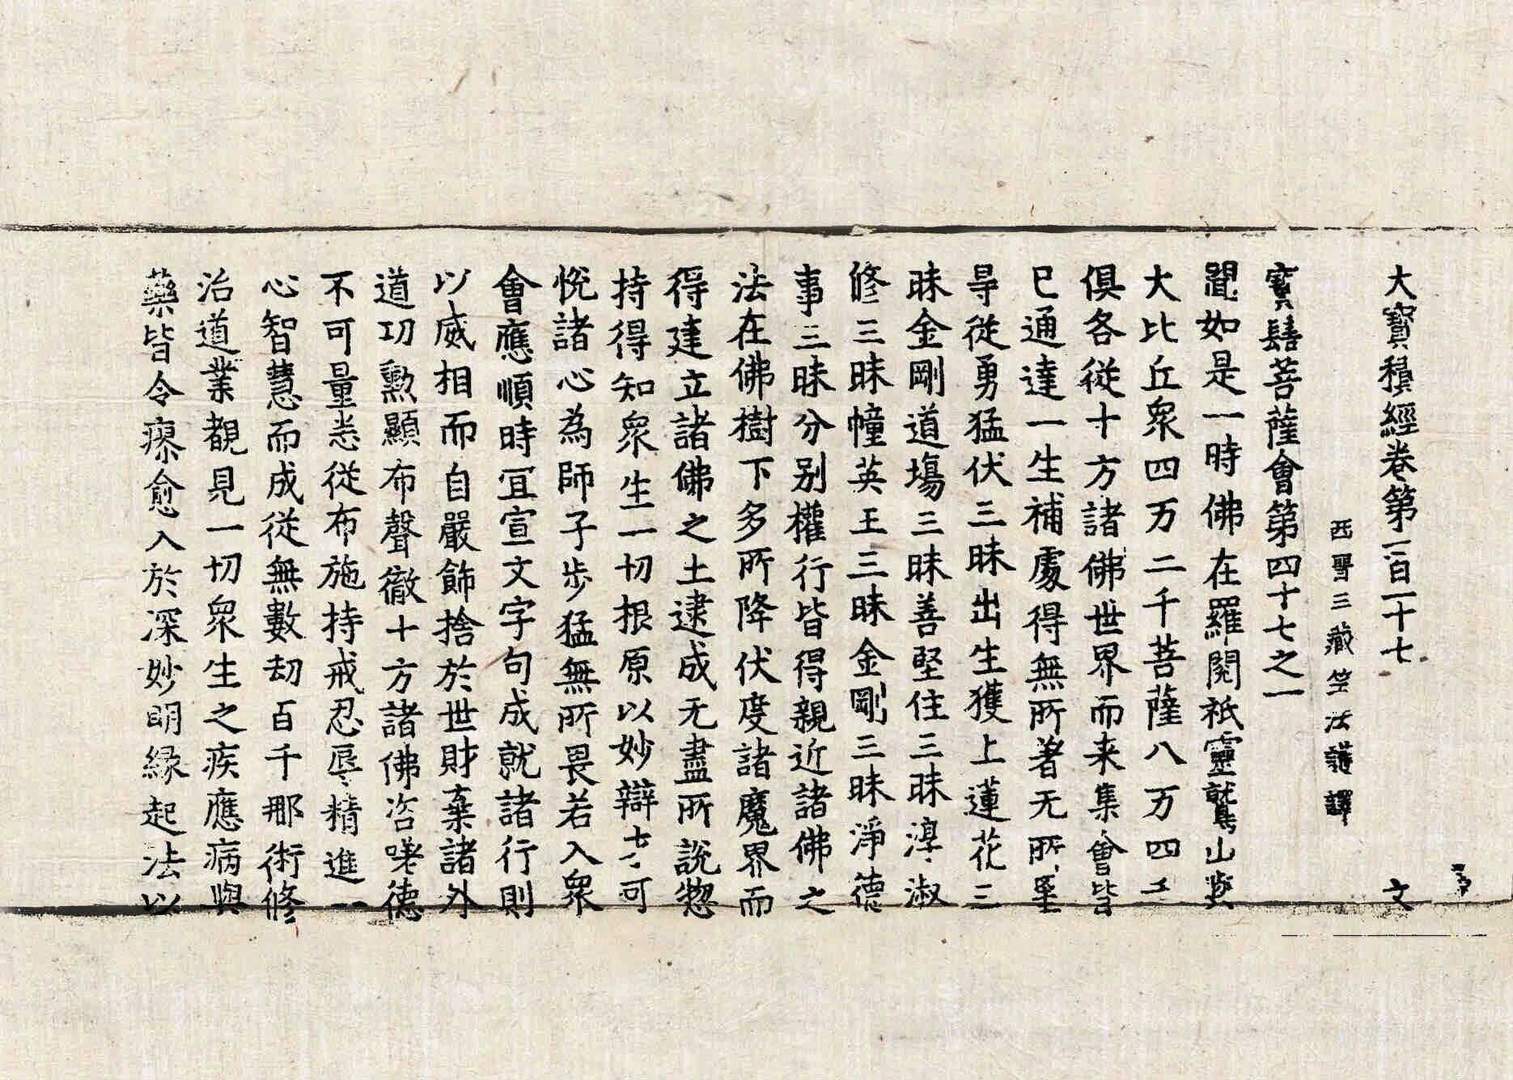 大寶積經卷第一百一十七 文
西晉三藏竺法護譯
寳髻菩薩會第四十七之一
聞如是一時佛在羅閱祇靈鷲山與
大比丘衆四万二千菩薩八万四千
俱各從十方諸佛世界而来集會皆
已通達一生補處得無所著无所罣
㝵從勇猛伏三昧出生獲上蓮花三
昧金剛道塲三昧善堅住三昧淳淑
修三昧幢英王三昧金剛三昧淨德
事三昧分别權行皆得親近諸佛之
法在佛樹下多所降伏度諸魔界而
得建立諸佛之土逮成无盡所說惣
持得知衆生一切根原以妙辯才可
悅諸心為師子步猛無所畏若入衆
會應順時冝宣文字句成就諸行則
以威相而自嚴飾捨於世財棄諸外
道功勲顯布聲徹十方諸佛咨嗟德
不可量恙從布施持戒忍辱精進一
心智慧而成從無數刼百千那術修
治道業覩見一切衆生之疾應病與
藥皆令療愈入於深妙明緣起法以